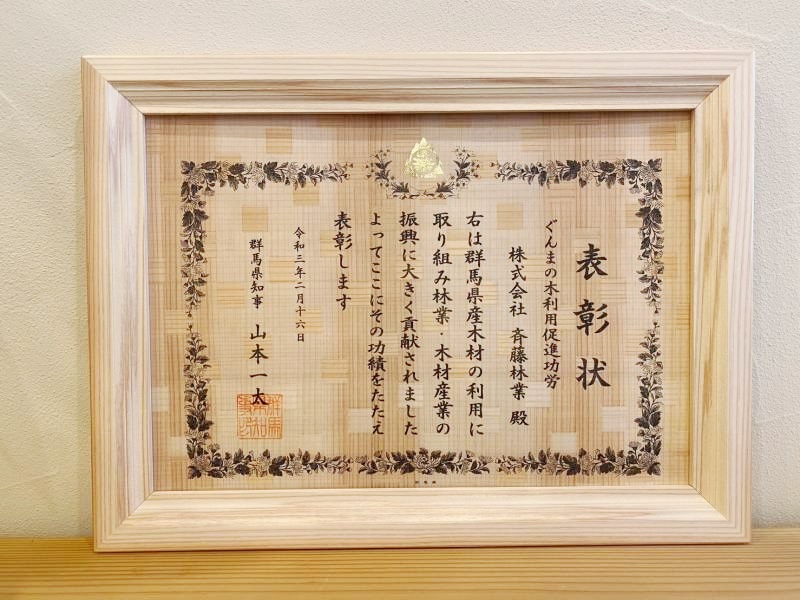 表彰状
ぐんまの木利用促進功労
株式会社 斉藤林業 殿
右は群馬県産木材の利用に
取り組み林業・木材産業の
振興に大きく貢献されました
よってここにその功績をたたえ
表彰します
令和三年二月十六日
群馬県知事 山本一太